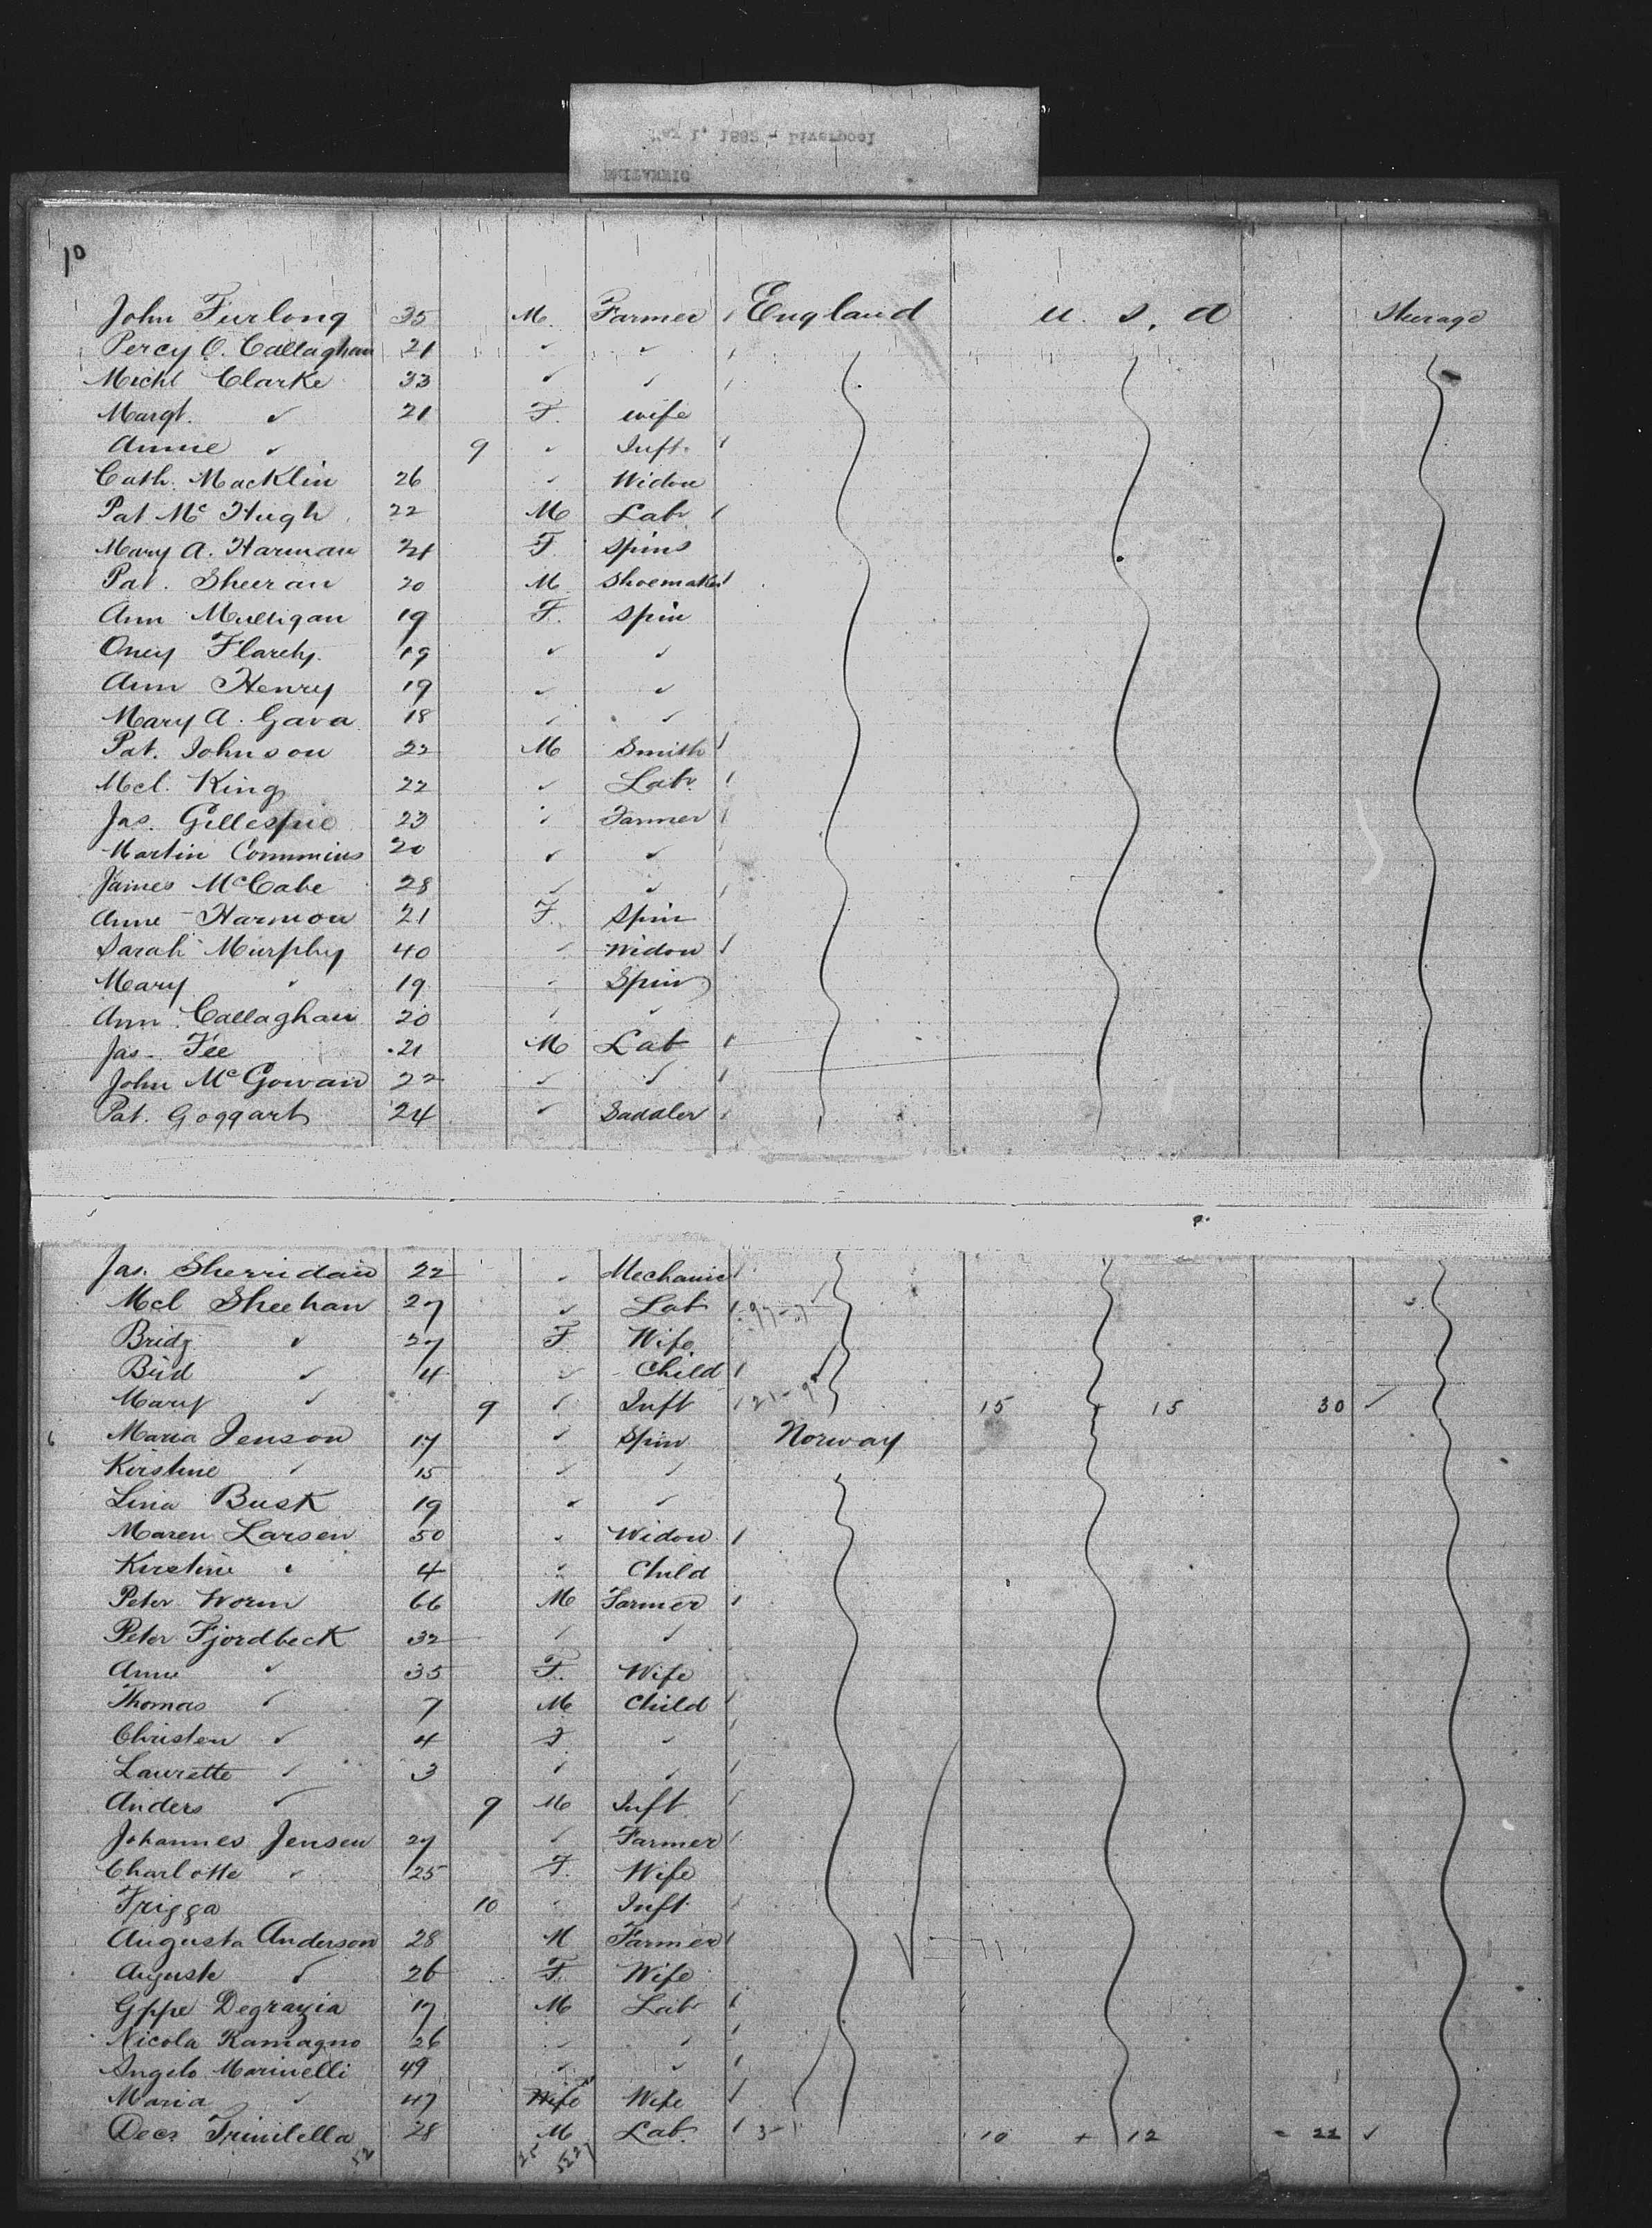 May 1, 1882 - Liverpool
BRITANNIC
10
John Furlong 35 M. Farmer England U. S. A Steerage
Percy O. Callaghan 21 " "
Michl Clarke 33 " "
Margt. " 21 F. Wife
Annie " 9 " Inft.
Cath. Macklin 26 " Widow
Pat Mc Hugh 22 M Lab
Mary A. Harman 24 F. Spins
Pat. Sheeran 20 M Shoemaker
Ann Mulligan 19 F. Spin
Oney Flarety 19 " "
Ann Henry 19 " "
Mary A. Gava 18 " "
Pat. Johnson 22 M Smith
Mcl. King 22 " Lab.
Jas. Gillespie 23 " Farmer
Martin Commmins 20 " "
James McCabe 28 " "
Anne Harmon 21 F. Spin
Sarah Murphy 40 " Widow
Mary " 19 " Spin
Ann Callaghan 20 " "
Jas. Fee 21 M Lab
John McGowan 22 " "
Pat. Goggart 24 " Saddler
Jas. Sherridan 22 " Mechanic
Mcl Sheehan 27 " Lab
Bridg " 27 F. Wife
Brid " 4 " Child
Mary " 9 " Inft 15 + 15 30
Maria Jenson 17 " Spin Norway
Kirstine " 15 " "
Lina Busk 19 " "
Maren Larsen 50 " Widow
Kirstine " 4 " Child
Peter Worm 66 M Farmer
Peter Fjordbeck 32 " "
Anne " 35 F. Wife
Thomas " 7 M Child
Christen " 4 F "
Laurette " 3 " "
Anders " 9 M Inft
Johannes Jensen 27 " Farmer
Charlotte " 25 F. Wife
Frigga 10 " Inft.
Augusta Anderson 28 M Farmer
Auguste " 26 F. Wife
Gppe Degrazia 17 M Lab
Nicola Ramagno 26 " "
Angelo Marinelli 49 " "
Maria " 47 Wife Wife
Trintella 28 M Lab. 3-1 10 + 12 = 22
52